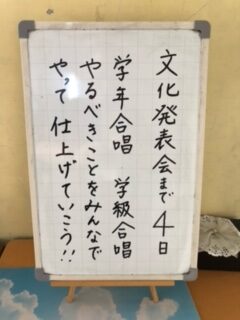 文化発表会まで4日
学年合唱 学級合唱
やるべきことをみんなで
やって 仕上げていこう!!